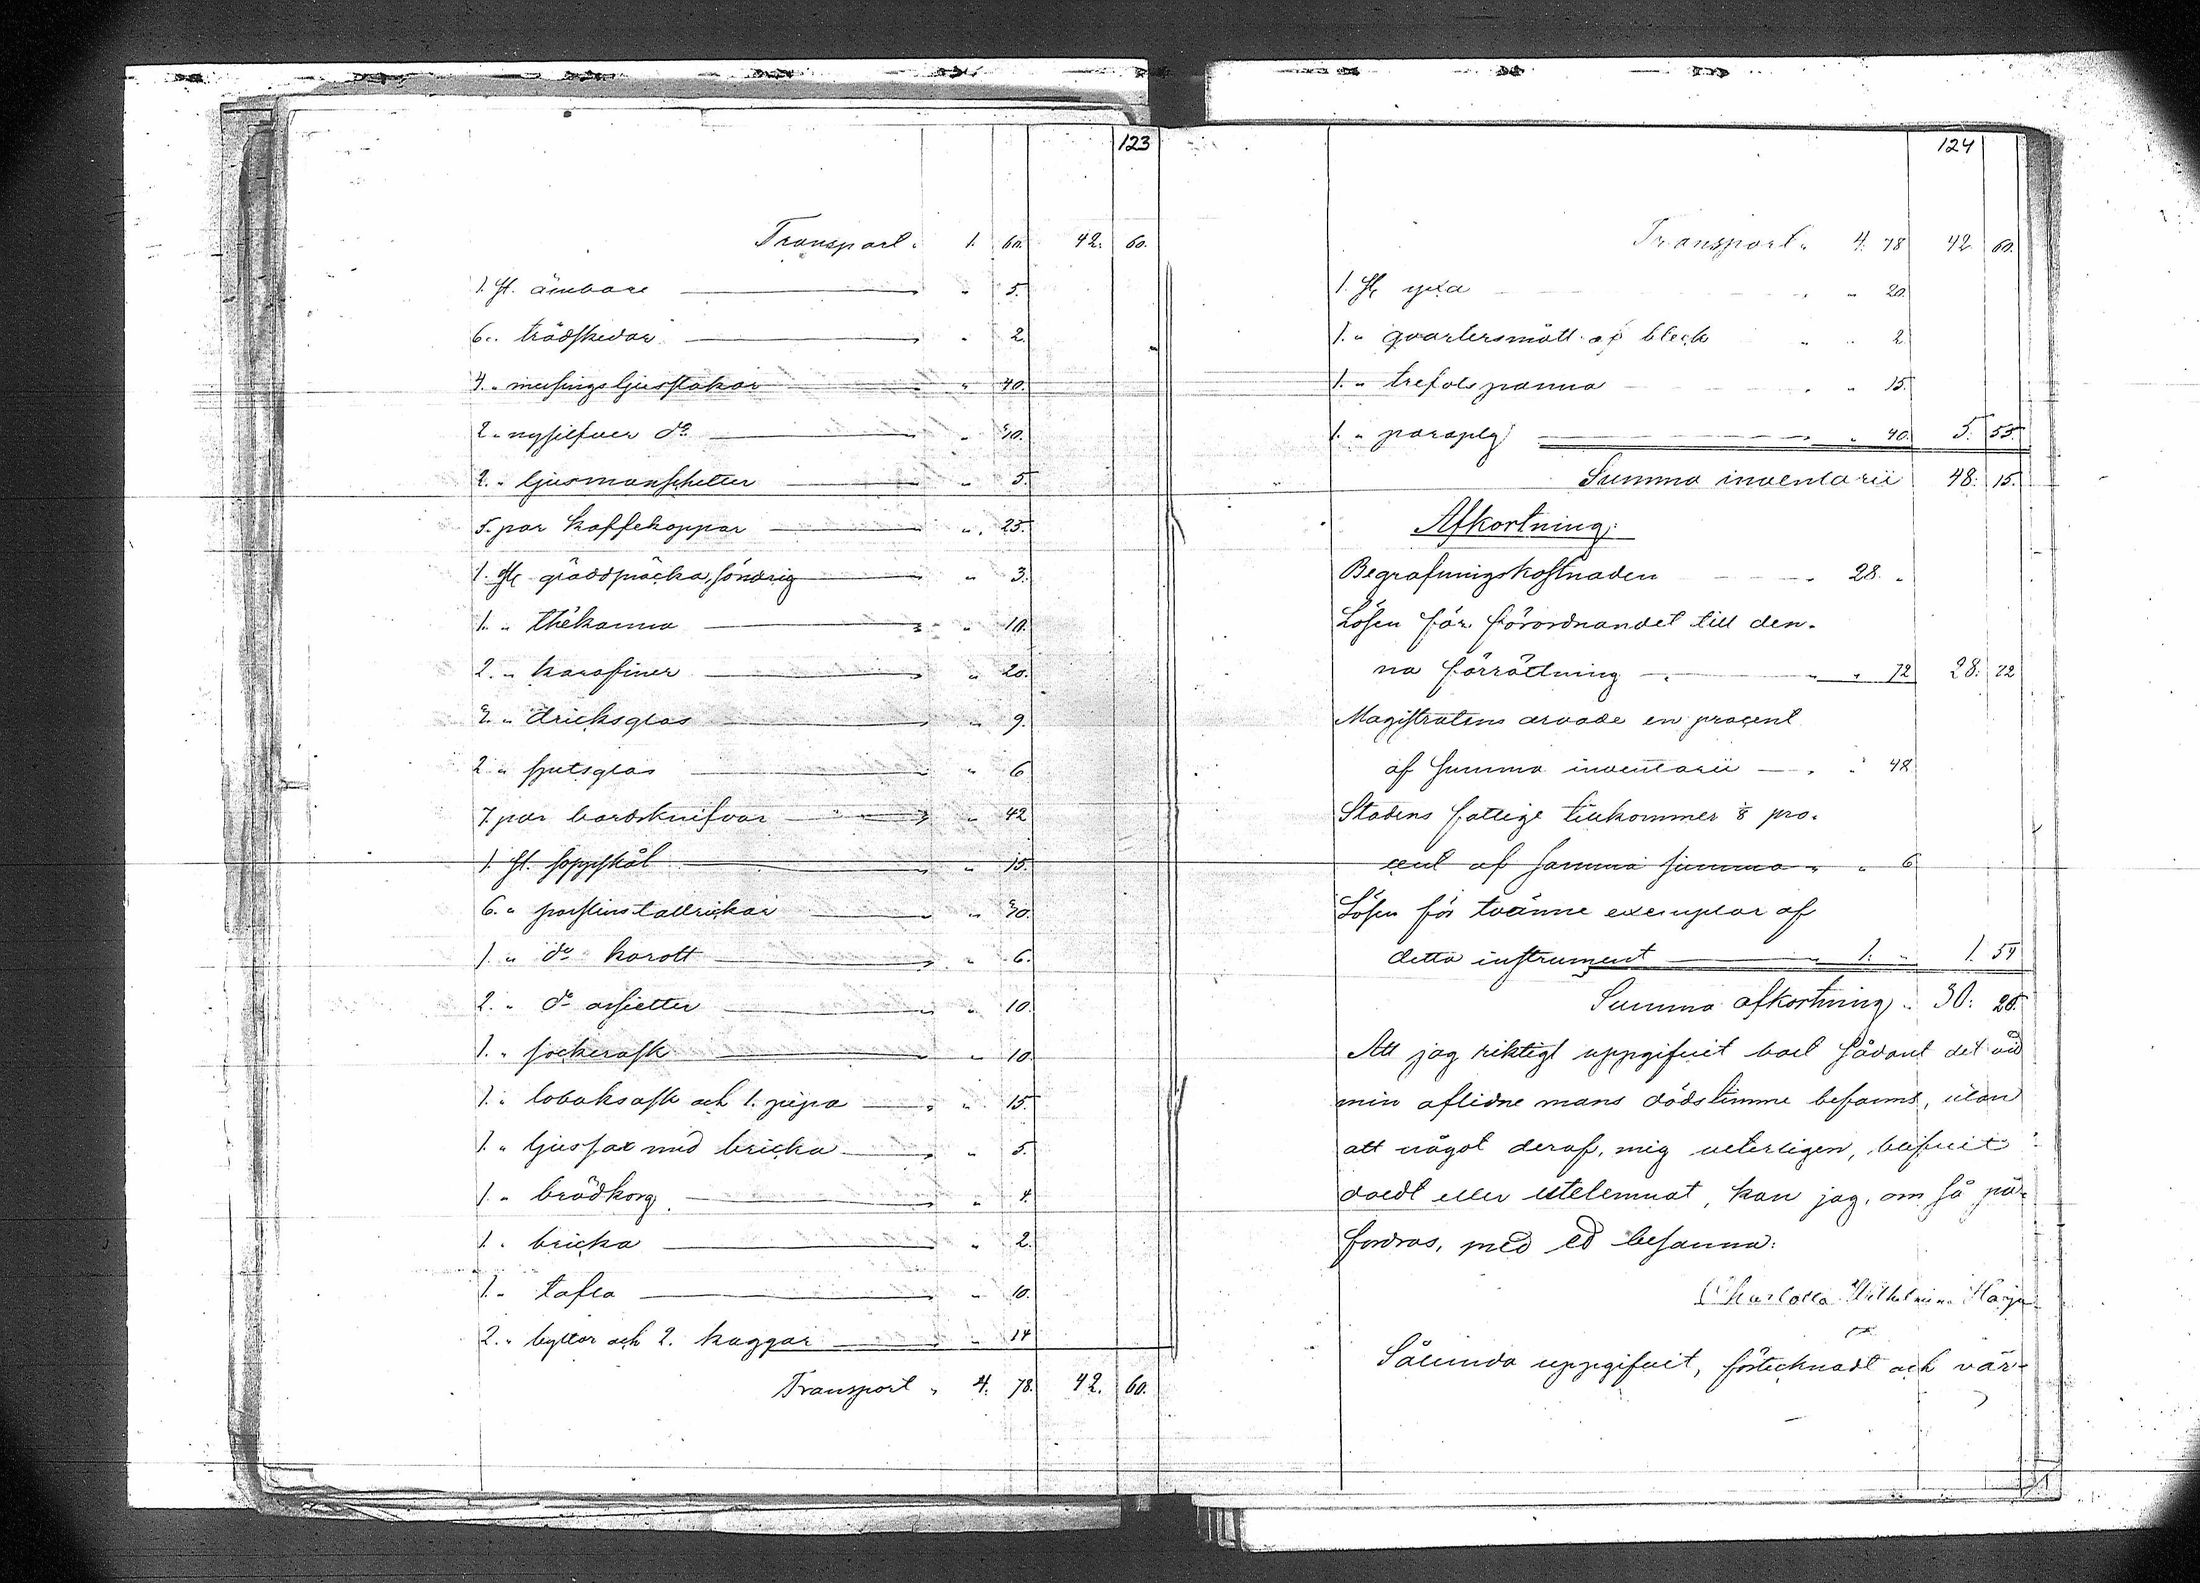 123
Transport " 1. 60. 42. 60.
1. st. ämbare " 5.
6. " trädskedar " 2.
4. " messings ljusstakar " 40.
2. " nysilfver do " 30.
2. " ljusmanschetter " 5.
5. par kaffekoppar " 25.
1. st. gräddsnäcka, söndrig " 3.
1. " thékanna " 10.
2. " karafiner " 20.
3. " dricksglas " 9.
2. " spetsglas " 6
7. par bordsknifvar " 42
1. st. soppskål " 15.
6. " porslinstallrickar " 30.
1. " do karott " 6.
2. " do assietter " 10.
1. " sockerask " 10
1. " tobaksask och 1. pipa " 15.
1. " ljussax med bricka " 5.
1. " brödkorg " 4.
1. " bricka " 2.
1. " tafla " 10.
2. " byttor och 2. kaggar " 14
Transport " 4. 78. 42. 60.
124
Transport " 4. 78 42 60.
1. st. yxa " 20.
1. " qvartersmått af bleck " 2.
1. " trefots panna " 15.
1. " paraply " 40. 5. 55.
Summa inventarii 48. 15.
Afkortning:
Begrafningskostnaden 28. "
Lösen för förordnandet till den-
na förrättning " 72 28. 72
Magistratens arvode en procent
af summa inventarii " 48
Stadens fattige tillkommer 1/8 pro-
cent af samma summa " 6
Lösen för tvänne exemplar af
detta instrument 1. " 1. 54
Summa afkortning 30. 26.
Att jag riktigt uppgifvit boet sådant det vid
min aflidne mans dödstimme befanns, utan
att något deraf, mig veterligen, blifvit
doldt eller utelemnat, kan jag, om så på-
fordras, med ed besanna:
Charlotta Wilhelmina
Sålunda uppgifvit, förtecknadt och vär-